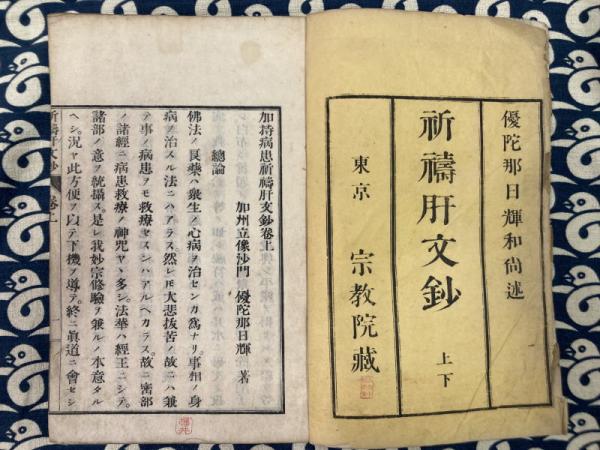 優陀那日輝和尚述
祈禱肝文鈔
上下
東京 宗教院藏
加持病患祈禱肝文鈔卷上
加州立像沙門 優陀那日輝 著
總論
佛法ノ良藥ハ衆生ノ心病ヲ治センカ爲ナリ事相ノ身
病ヲ治スル法ニハアラス然レ𪜈大悲拔苦ノ故ニハ兼
テ事ノ病患ヲモ救療セスンハアルヘカラス。故ニ密部
ノ諸經ニ病患救療ノ神咒ヤヽ多シ。法華ハ經王ニシテ。
諸部ノ意ヲ統攝ス。是レ我妙宗修驗ヲ兼ルノ本意タル
ヘシ。況ヤ此方便ヲ以テ下機ヲ導テ。終ニ眞道ニ會セシ
祈禱肝文鈔 卷上 一